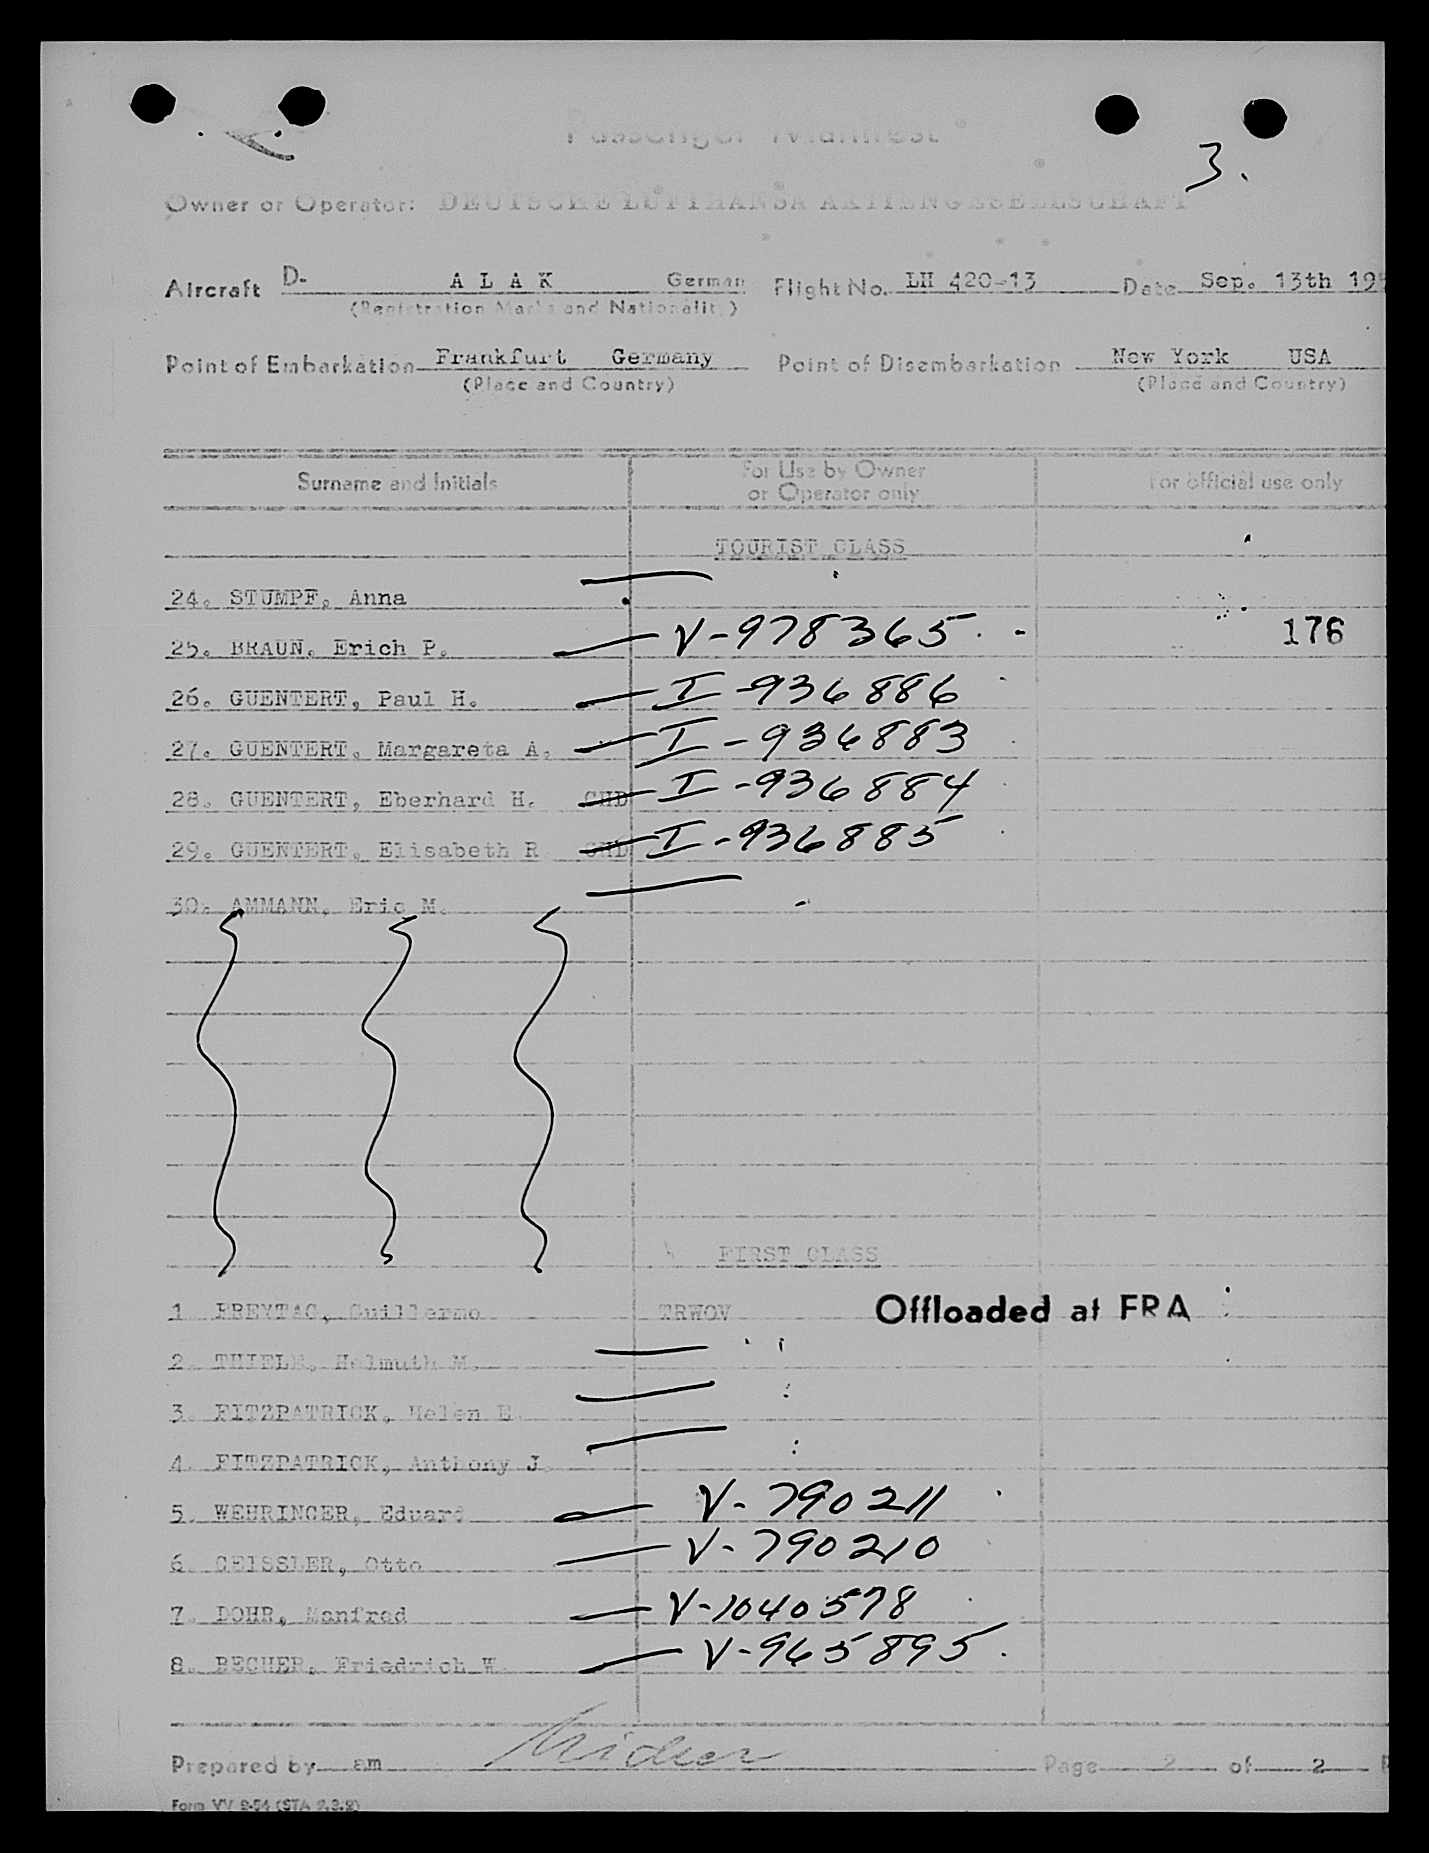 Passenger Manifest
3.
Owner or Operator: DEUTSCHE LUFTHANSA AKTIENGESELLSCHAFT
Aircraft D- A L A K German Flight No. LH 420-13 Date Sep. 13th 195
(Registration Marks and Nationality)
Point of Embarkation Frankfurt Germany Point of Disembarkation New York USA
(Place and Country) (Place and Country)
Surname and Initials For Use by Owner or Operator only For official use only
TOURIST CLASS
24. STUMPF, Anna
25. BRAUN, Erich P. V-978365 176
26. GUENTERT, Paul H. I-936886
27. GUENTERT, Margareta A. I-936883
28. GUENTERT, Eberhard H. CHD I-936884
29. GUENTERT, Elisabeth R CHD I-936885
30. AMMANN, Eric M.
FIRST CLASS
1 FREYTAG, Guillermo TRWOV Offloaded at FRA
2. THIELE, Helmuth M.
3. FITZPATRICK, Helen E.
4. FITZPATRICK, Anthony J.
5. WEHRINGER, Eduard V-790211
6. GEISSLER, Otto V-790210
7. DOHR, Manfred V-1040578
8. BECHER, Friedrich W. V-965895
Prepared by am Page 2 of 2
Form VV 9-54 (STA 9.3.2)